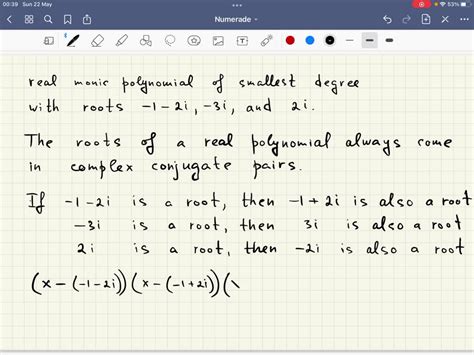 00:39 Sun 22 May
53%
Numerade
real monic polynomial of smallest degree
with roots -1-2i, -3i, and 2i.
The roots of a real polynomial always come
in complex conjugate pairs.
If -1-2i is a root, then -1+2i is also a root
-3i is a root, then 3i is also a root
2i is a root, then -2i is also a root
(x-(-1-2i))(x-(-1+2i))(